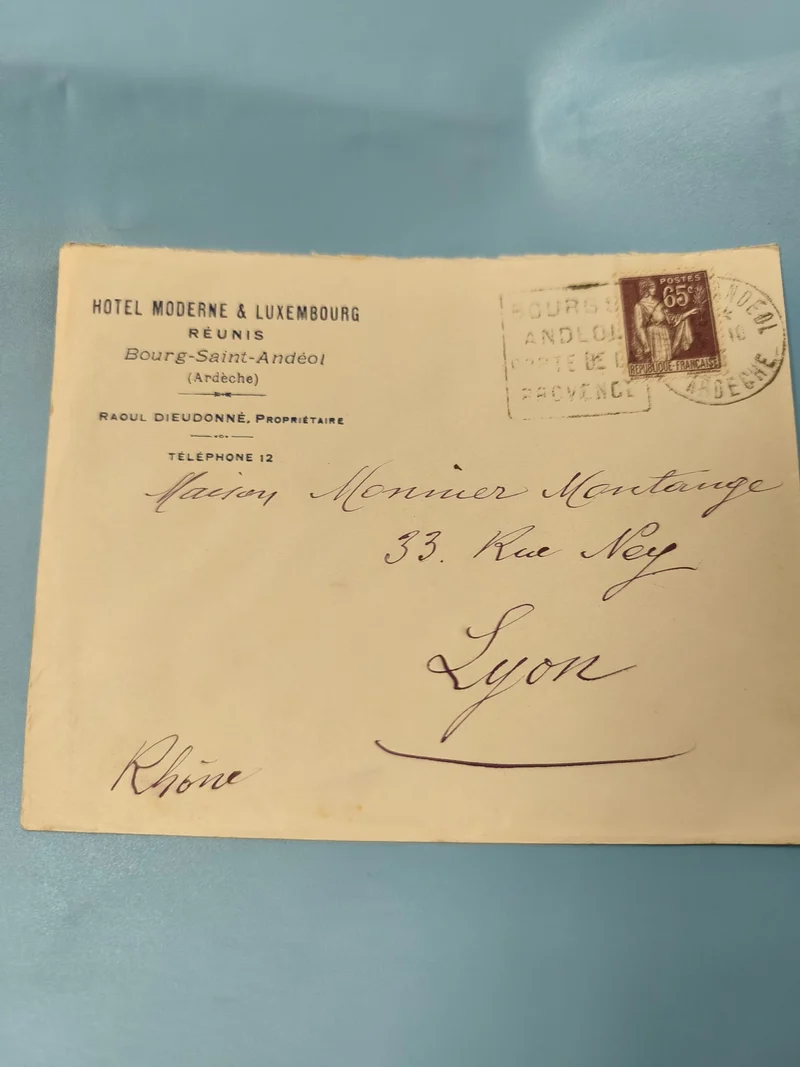 HOTEL MODERNE & LUXEMBOURG
RÉUNIS
Bourg-Saint-Andéol
(Ardèche)
RAOUL DIEUDONNÉ, PROPRIÉTAIRE
TÉLÉPHONE 12
BOURG S
ANDEOL
PORTE DE
PROVENCE
POSTES
65c
REPUBLIQUE·FRANÇAISE
ANDEOL
18
ARDECHE
Maison Monnier Montange
33. Rue Ney
Lyon
Rhône